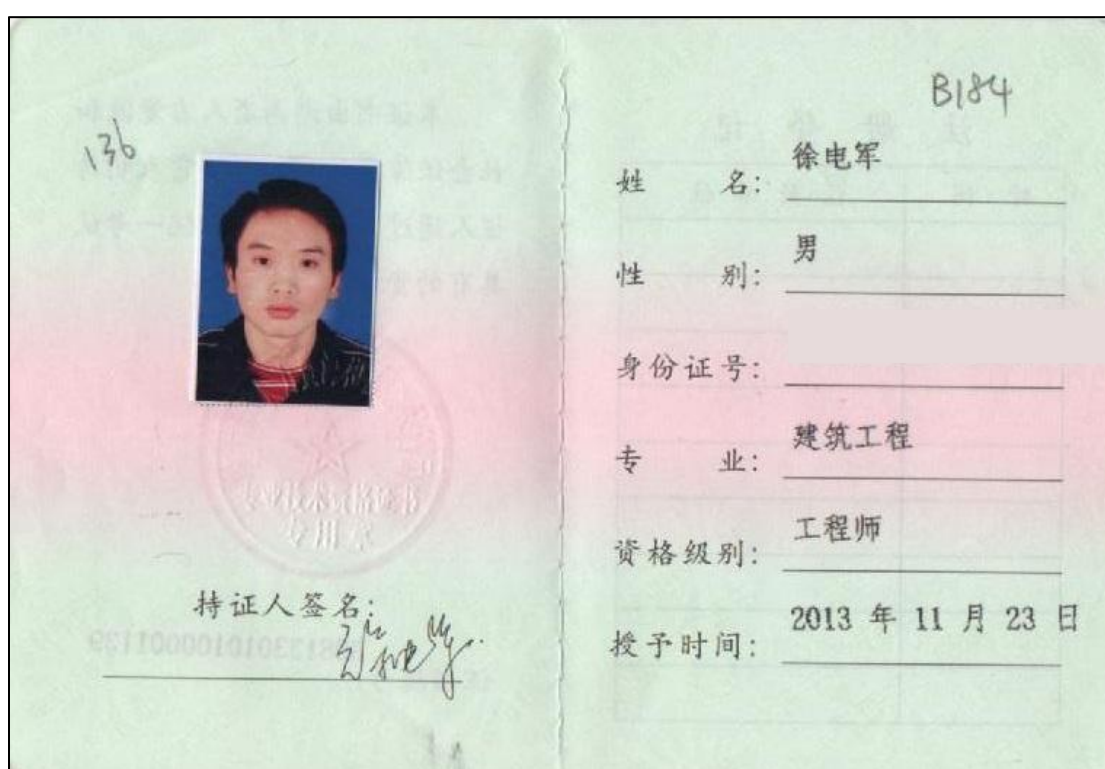 136
专业技术资格证书
专用章
持证人签名:
B184
姓 名: 徐电军
性 别: 男
身份证号:
专 业: 建筑工程
资格级别: 工程师
授予时间: 2013 年 11 月 23 日